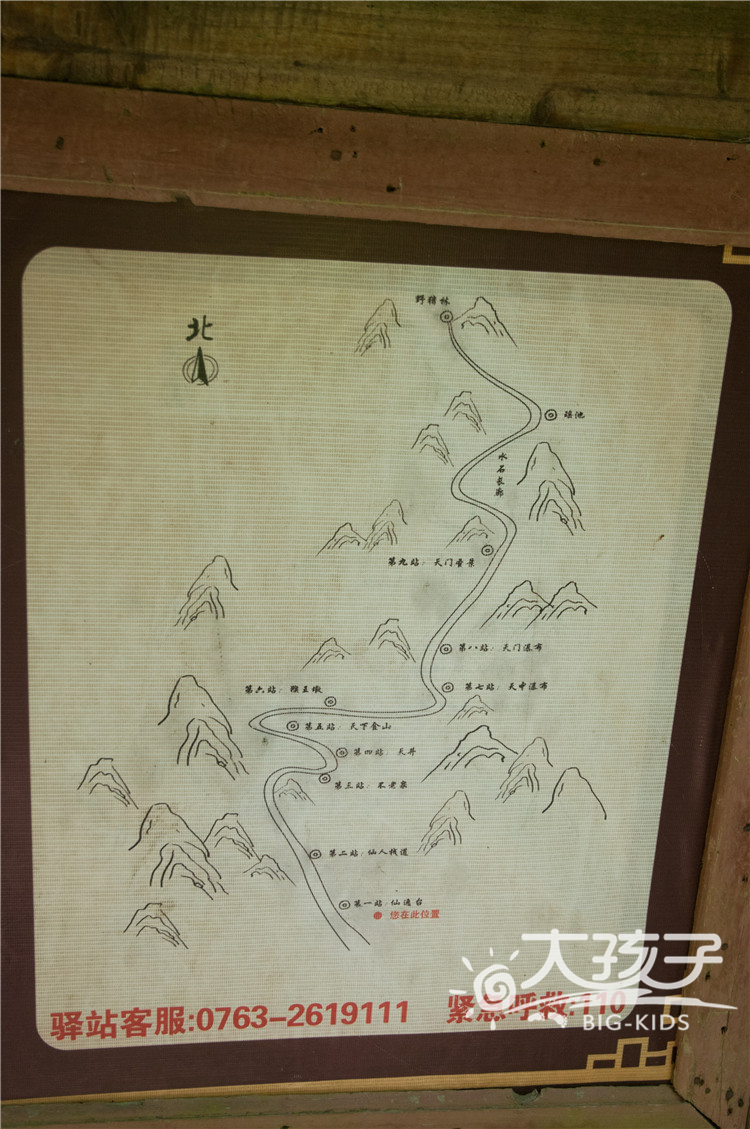 北
野猪林
瑶池
水石长廊
第九站：天门奇景
第八站：天门瀑布
第七站：天中瀑布
第六站：猴王墩
第五站：天下金山
第四站：天井
第三站：不老泉
第二站：仙人栈道
第一站：仙逸台
您在此位置
驿站客服:0763-2619111 紧急呼救:110
大孩子
BIG-KIDS